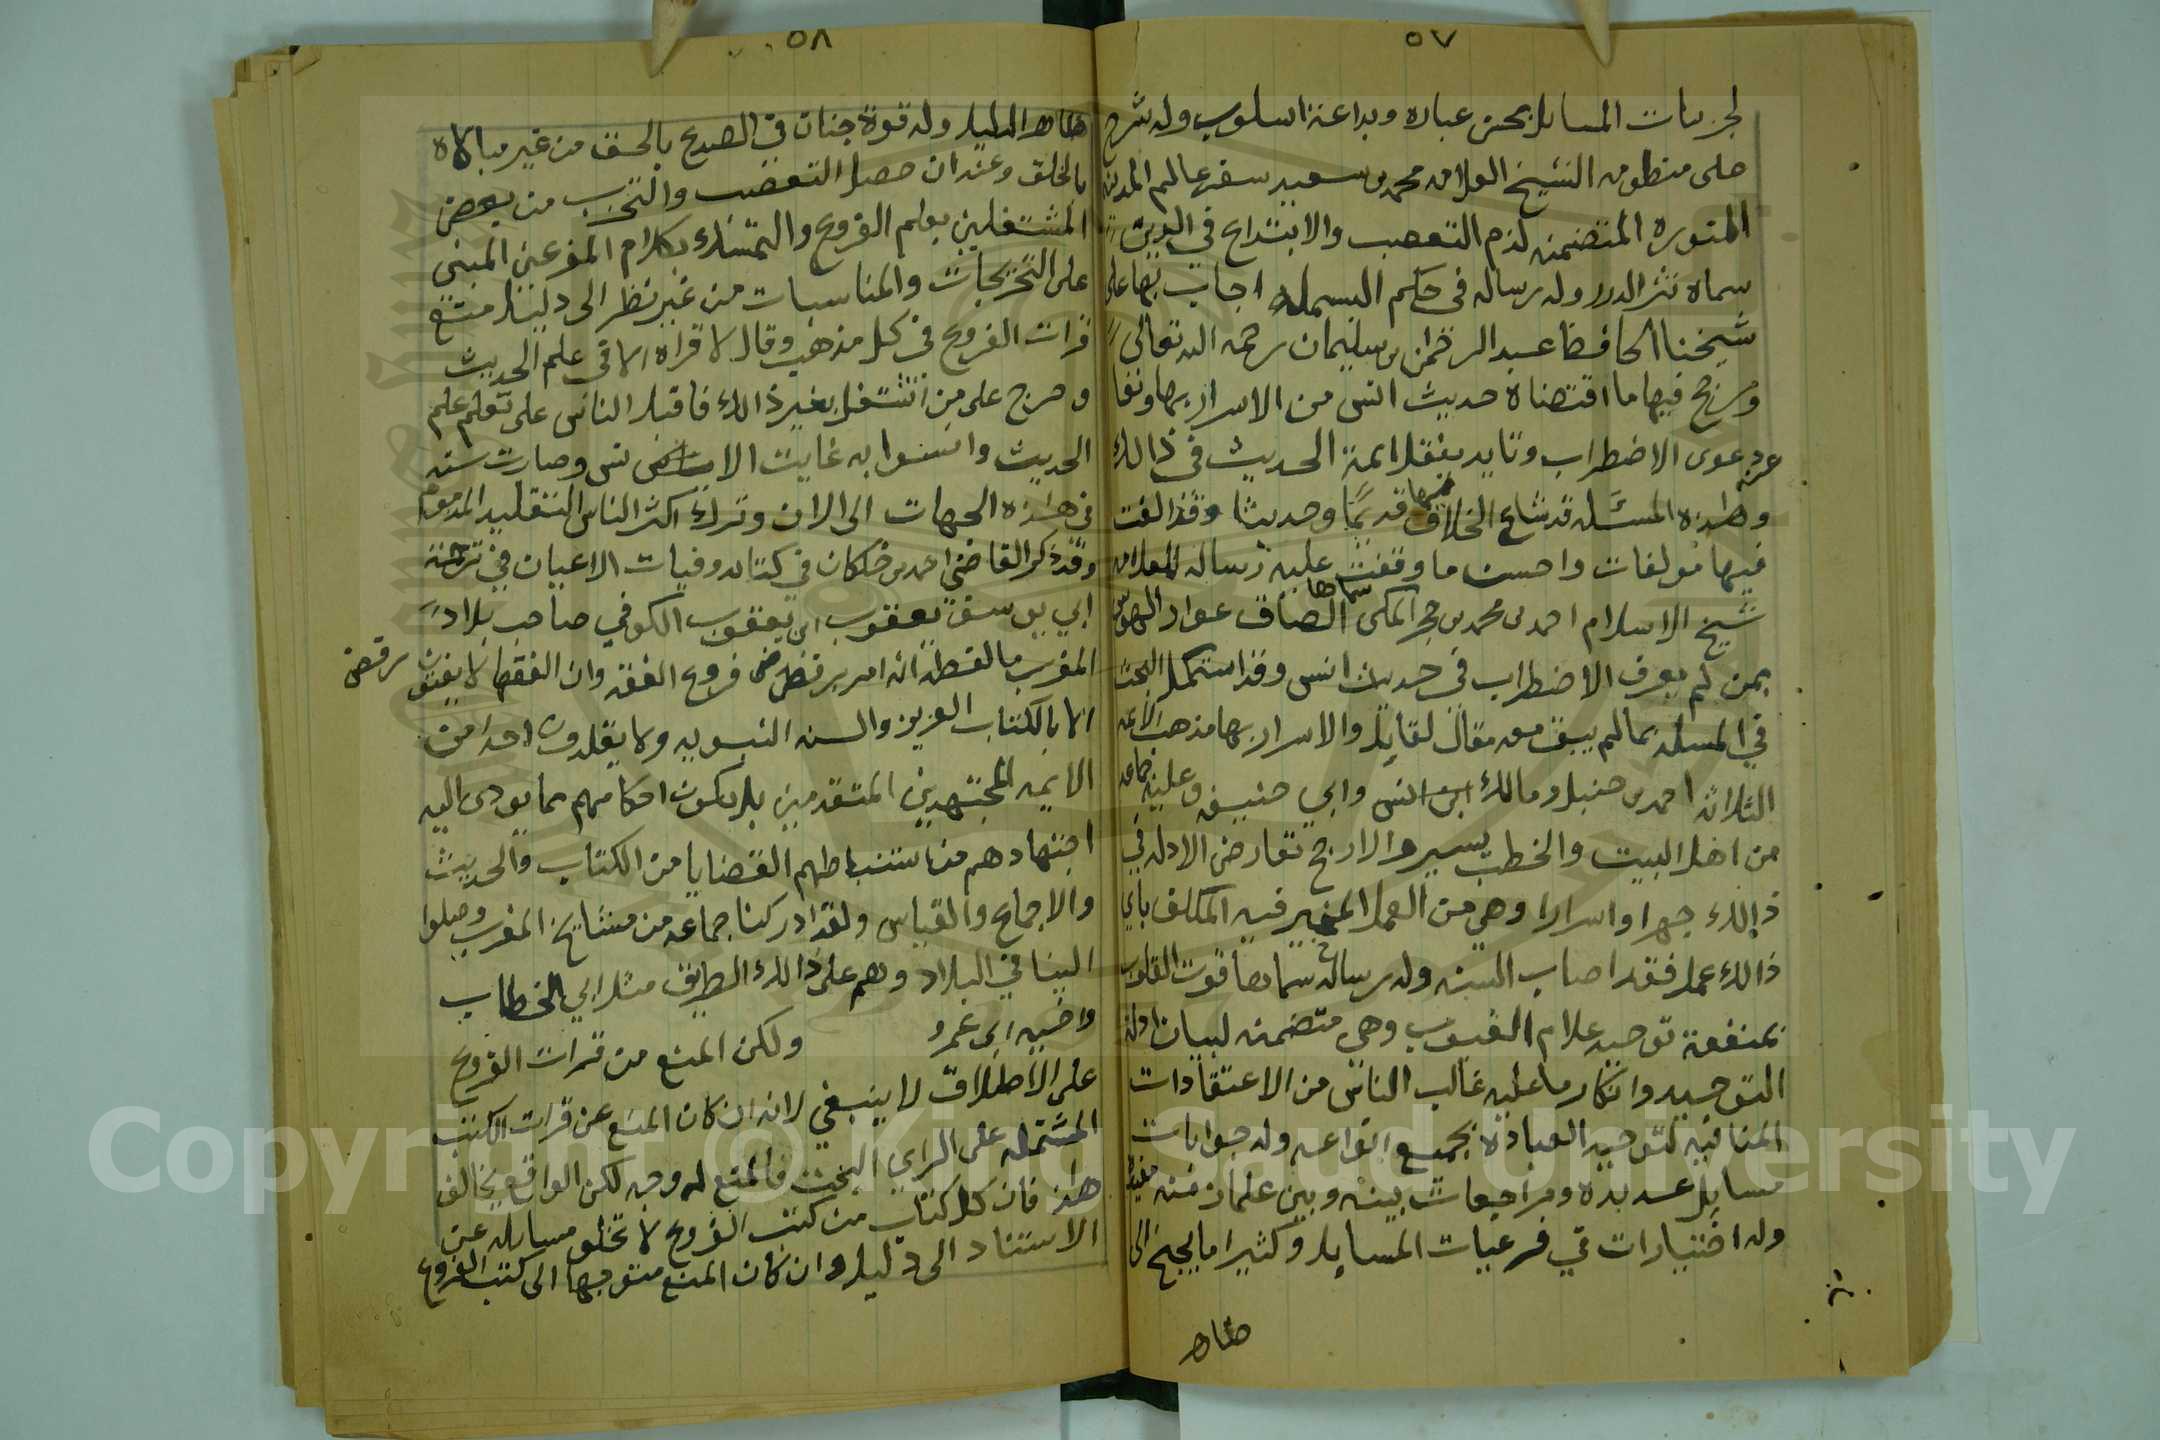 ٥٧
لجزئيات المسايل بحسن عباره وبداعة اسلوب وله شرح
على منظومه الشيخ العلامه محمد بن سعيد سفر عالم المدينه
المنوره المتضمنه لذم التعصب والابتداع في الدين
سماه نثر الدرر وله رساله في حكم البسمله اجاب بها على
شيخنا الحافظ عبد الرحمن بن سليمان رحمه الله تعالى
ورجح فيها ما اقتضاه حديث انس من الاسرار بها ونفا
عنه دعوى الاضطراب وتايد بنقل ايمة الحديث في ذالك
وهذه المسئله قد شاع الخلاف فيها قديمًا وحديثا وقد الفت
فيها مولفات واحسن ما وقفت عليه رساله للعلامه
شيخ الاسلام احمد بن محمد بن حجر المكي سماها الصاق عوار الهوس
بمن لم يعرف الاضطراب في حديث انس وقد استكمل البحث
في المسله بما لم يبق معه مقال لقايل والاسرار بها مذهب الايمه
الثلاثه احمد بن حنبل ومالك ابن انس وابي حنيفه وعليه جماعه
من اهل البيت والخطب يسير والارجح تعارض الادله في
ذالك جهرا واسرارا وهي من العمل المخير فيه المكلف باي
ذالك عمل فقد اصاب السنه وله رساله سماها قوت القلوب
بمنفعة توحيد علام الغيوب وهي متضمنه لبيان ادلة
التوحيد وانكار ما عليه غالب الناس من الاعتقادات
المنافيه لتوحيد العبادة بجميع انواعه وله جوابات
مسايل عديده ومراجعات بينه وبين علماء زمنه مفيده
وله اختيارات في فرعيات المسايل وكثيرا ما يجنح الى
ظاهر
٥٨
ظاهر الدليل وله قوة جنان في الصدع بالحق من غير مبالاه
بالخلق وعند ان حصل التعصب والتحزب من بعض
المشتغلين بعلم الفروع والتمسك بكلام المفرعين المبني
على التخريجات والمناسبات من غير نظر الى دليل منع
قرات الفروع في كل مذهب وقال لا قراه الا في علم الحديث
وحرج على من اشتغل بغير ذالك فاقبل الناس على تعلم علم
الحديث وانسوا به غايت الاستئناس وصارت سنه
في هذه الجهات الى الان وترك اكثر الناس التقليد المذموم
وقد ذكر القاضي احمد بن خلكان في كتابه وفيات الاعيان في ترجمة
ابي يوسف يعقوب ابن يعقوب الكوفي صاحب بلاد
المغرب ما لفظه انه امر برفض فروع الفقه وان الفقها لا يفتون
برفض
الا بالكتاب العزيز والسنه النبويه ولا يقلدون احدا من
الايمه المجتهدين المتقدمين بل يكون احكامهم مما يودى اليه
اجتهادهم من استنباطهم القضايا من الكتاب والحديث
والاجماع والقياس ولقد ادركنا جماعه من مشايخ المغرب وصلوا
الينا في البلاد وهم على ذالك الطريق مثل ابي الخطاب
واخيه ابى عمرو ولكن المنع من قرات الفروع
على الاطلاق لا ينبغي لانه ان كان المنع عن قرات الكتب
المشتمله على الراي البحت فالمنع له وجه لكن الواقع يخالف
هذا فان كل كتاب من كتب الفروع لا تخلو مسايله عن
الاستناد الى دليل وان كان المنع متوجها الى كتب الفروع
Copyright © King Saud University